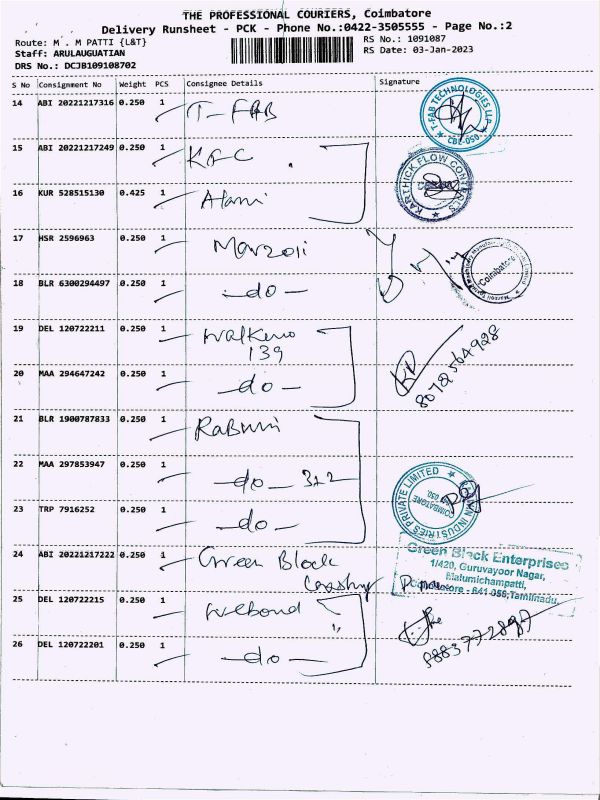 THE PROFESSIONAL COURIERS, Coimbatore
Delivery Runsheet - PCK - Phone No.:0422-3505555 - Page No.:2
Route: M . M PATTI {L&T}
RS No.: 1091087
Staff: ARULAUGUATIAN
RS Date: 03-Jan-2023
DRS No.: DCJB109108702
S No Consignment No Weight PCS Consignee Details Signature
14 ABI 20221217316 0.250 1 T-FAB
T-FAB TECHNOLOGIES LLP
CBE-050.
15 ABI 20221217249 0.250 1 KFC
KARTHICK FLOW CONTROLS
16 KUR 528515130 0.425 1
17 HSR 2596963 0.250 1 Marzoli
Coimbatore
18 BLR 6300294497 0.250 1 -do-
19 DEL 120722211 0.250 1
139
20 MAA 294647242 0.250 1 -do-
8072564928
21 BLR 1900787833 0.250 1
22 MAA 297853947 0.250 1 -do-
INDUSTRIES PRIVATE LIMITED
COIMBATORE
23 TRP 7916252 0.250 1 -do-
24 ABI 20221217222 0.250 1 Green Block
Green Block Enterprises
1/420, Guruvayoor Nagar,
Malumichampatti,
Coimbatore - 641 056, Tamilnadu.
25 DEL 120722215 0.250 1 Webond
26 DEL 120722201 0.250 1 -do-